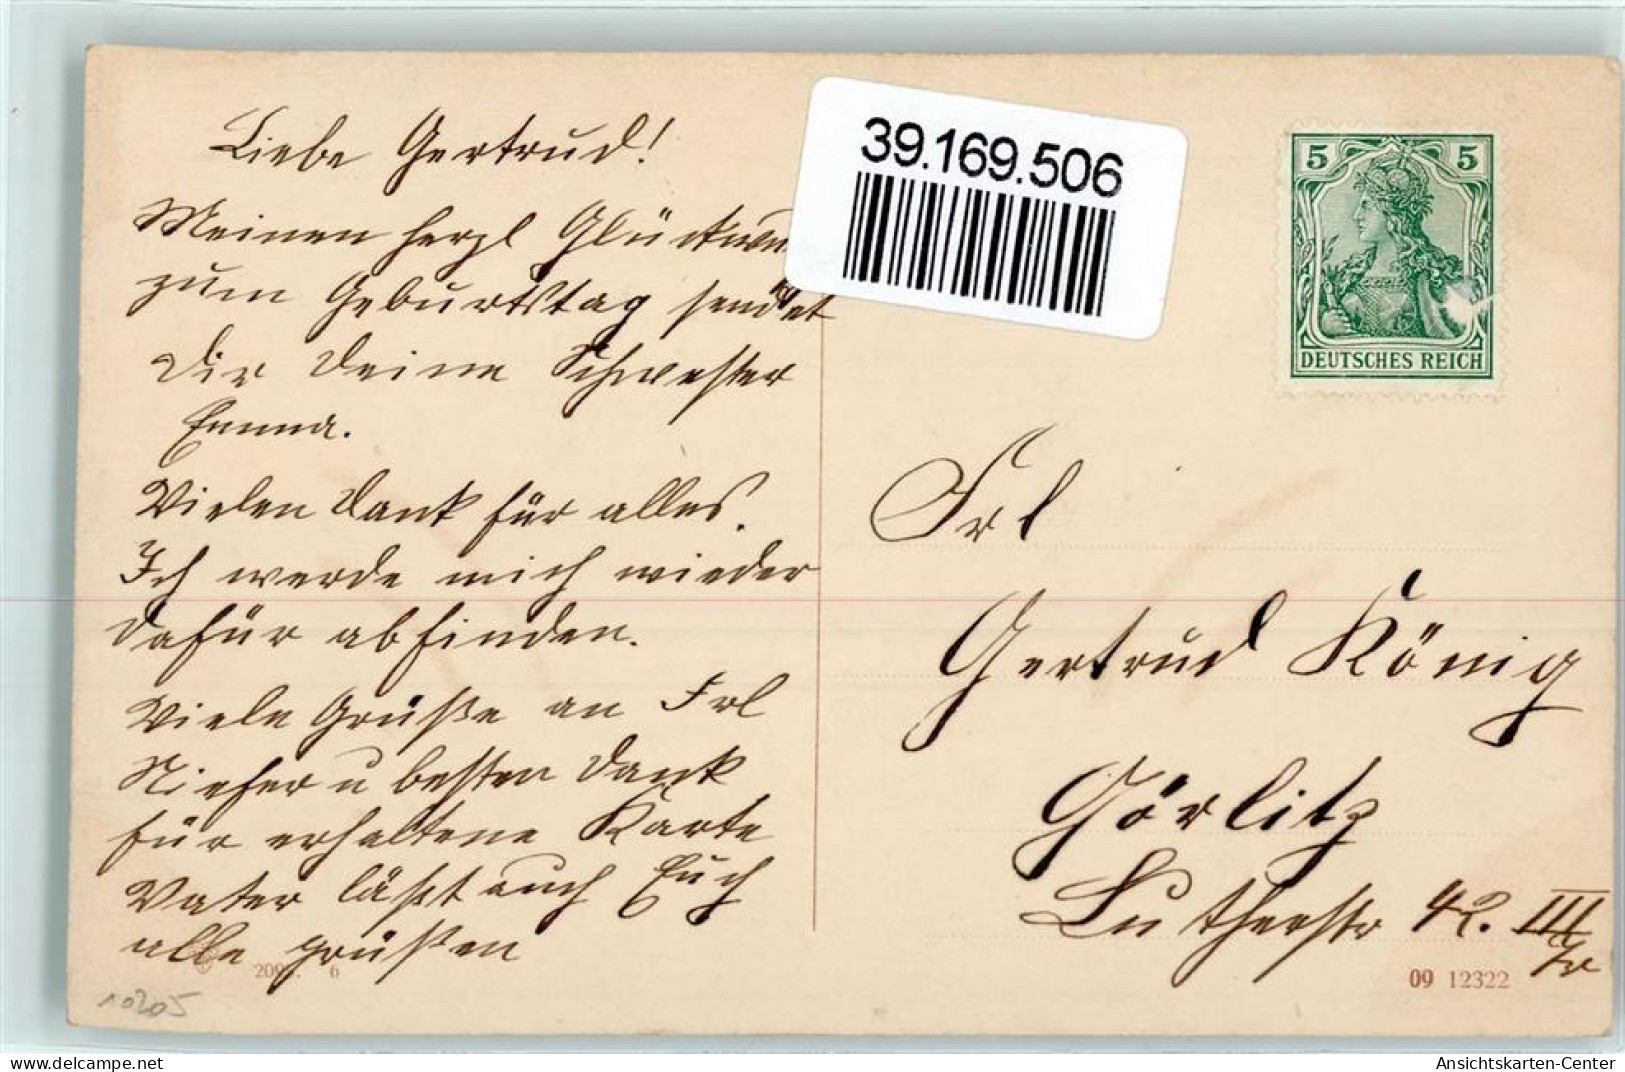 Liebe Gertrud!
Meinen herzl Glückwun
zum Geburtstag sendet
Dir Deine Schwester
Emma.
Vielen Dank für alles.
Ich werde mich wieder
dafür abfinden.
Viele Grüße an Frl
Kiefer u besten Dank
für erhaltene Karte
Vater läßt auch Euch
alle grüßen
10205
39.169.506
5 5
DEUTSCHES REICH
Frl
Gertrud König
Görlitz
Lutherstr 42. III
09 12322
Ansichtskarten-Center